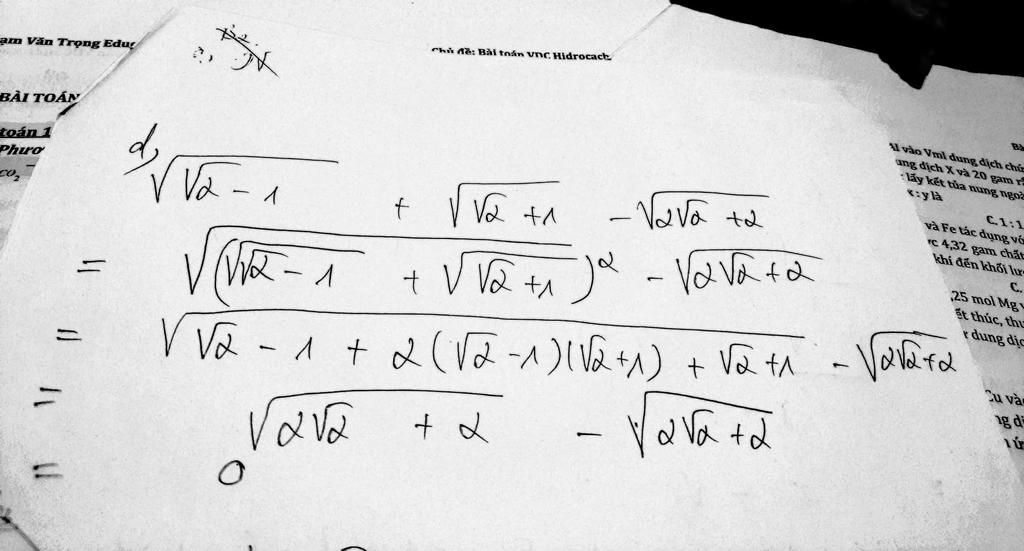 am Văn Trọng Edu
Chủ đề: Bài toán VDC Hidrocacb
BÀI TOÁN
toán 1
Phươ
CO₂
d, √(√2 - 1) + √(√2 + 1) - √(2√2 + 2)
= √((√(√2 - 1) + √(√2 + 1))²) - √(2√2 + 2)
= √(√2 - 1 + 2(√2 - 1)(√2 + 1) + √2 + 1) - √(2√2 + 2)
= √(2√2 + 2) - √(2√2 + 2)
= 0
Al vào Vml dung dịch chứ
ung dịch X và 20 gam r
lấy kết tủa nung ngoà
x : y là
C. 1 : 1
và Fe tác dụng vớ
rc 4,32 gam chất
khí đến khối lư
C.
,25 mol Mg v
ết thúc, thu
r dung dịc
Cu và